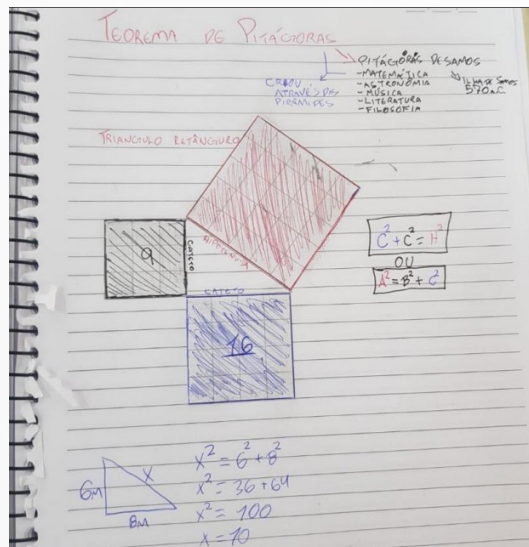 TEOREMA DE PITÁGORAS
PITÁGORAS DE SAMOS
-MATEMÁTICA
-ASTRONOMIA
-MÚSICA
-LITERATURA
-FILOSOFIA
ILHA DE SAMOS
570 a.C
CRIOU
ATRAVÉS DAS
PIRÂMIDES
TRIANGULO RETÂNGURO
9
CATETO
HIPOTENUSA
CATETO
16
C² + C² = H²
OU
A² = B² + C²
6M
X
8M
X² = 6² + 8²
X² = 36 + 64
X² = 100
X = 10